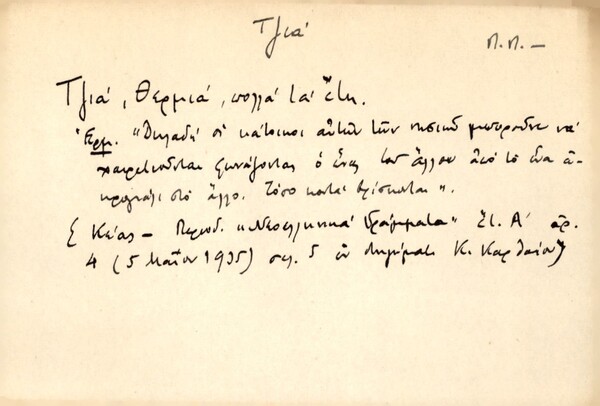 Τζιά
Π.Π. —
Τζιά, Θερμιά, πολλά τά ἔτη.
Ἑρμ. "Δηλαδή οἱ κάτοικοι αὐτῶν τῶν νησιῶν μποροῦνε νά
χαιρετιοῦνται φωνάζοντας ὁ ἕνας τοῦ ἄλλου ἀπό τό ἕνα ἀ-
κρογιάλι στό ἄλλο. Τόσο κοντά βρίσκονται".
ξ Κέας — Περιοδ. "Νεοελληνικά Γράμματα" ἔτ. Α' ἀρ.
4 (5 Μαΐου 1935) σελ. 5 ἐν διηγήματι Κ. Καρθαίου)